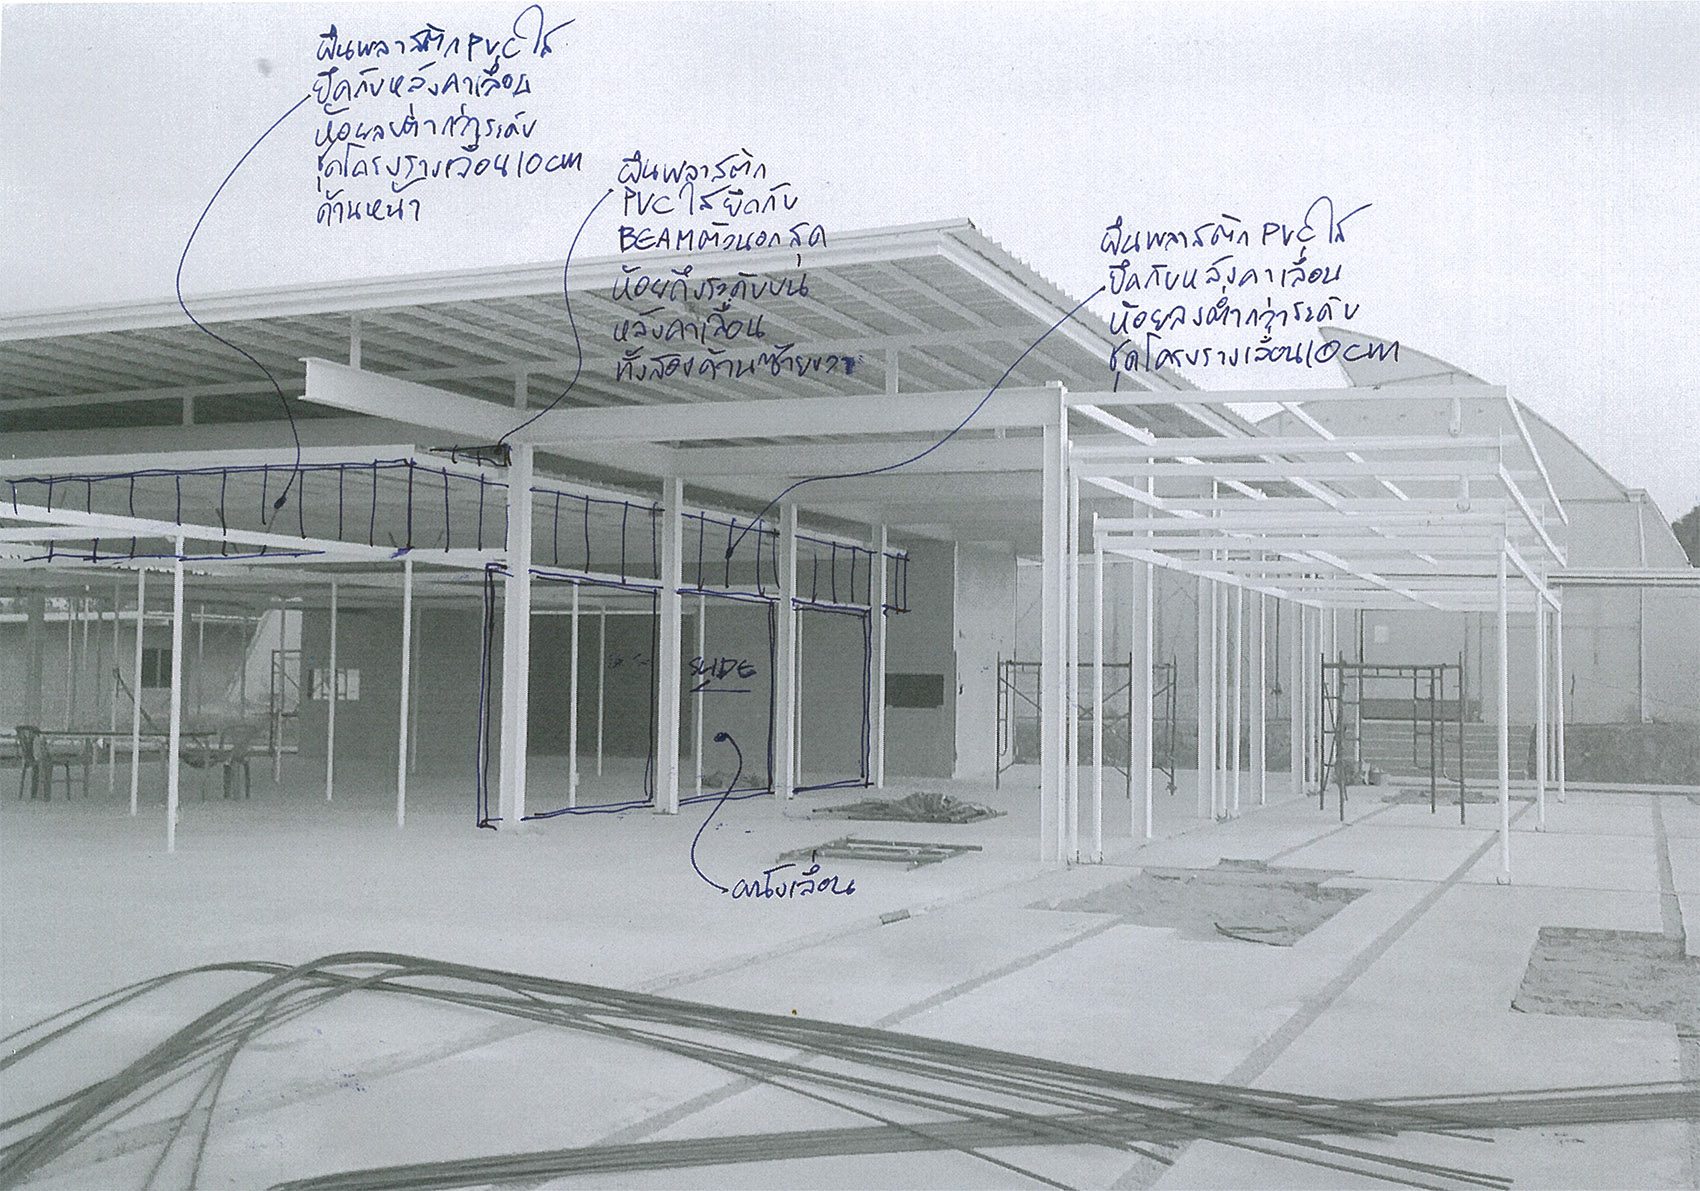 ผืนพลาสติก PVC ใส
ยึดกับหลังคาเลื่อน
ห้อยลงต่ำกว่าระดับ
ชุดโครงรางเลื่อน 10 cm
ด้านหน้า
ผืนพลาสติก
PVC ใส ยึดกับ
BEAM ตัวนอกสุด
ห้อยถึงระดับบน
หลังคาเลื่อน
ทั้งสองด้านซ้ายขวา
ผืนพลาสติก PVC ใส
ยึดกับหลังคาเลื่อน
ห้อยลงต่ำกว่าระดับ
ชุดโครงรางเลื่อน 10 cm
SLIDE
ผนังเลื่อน